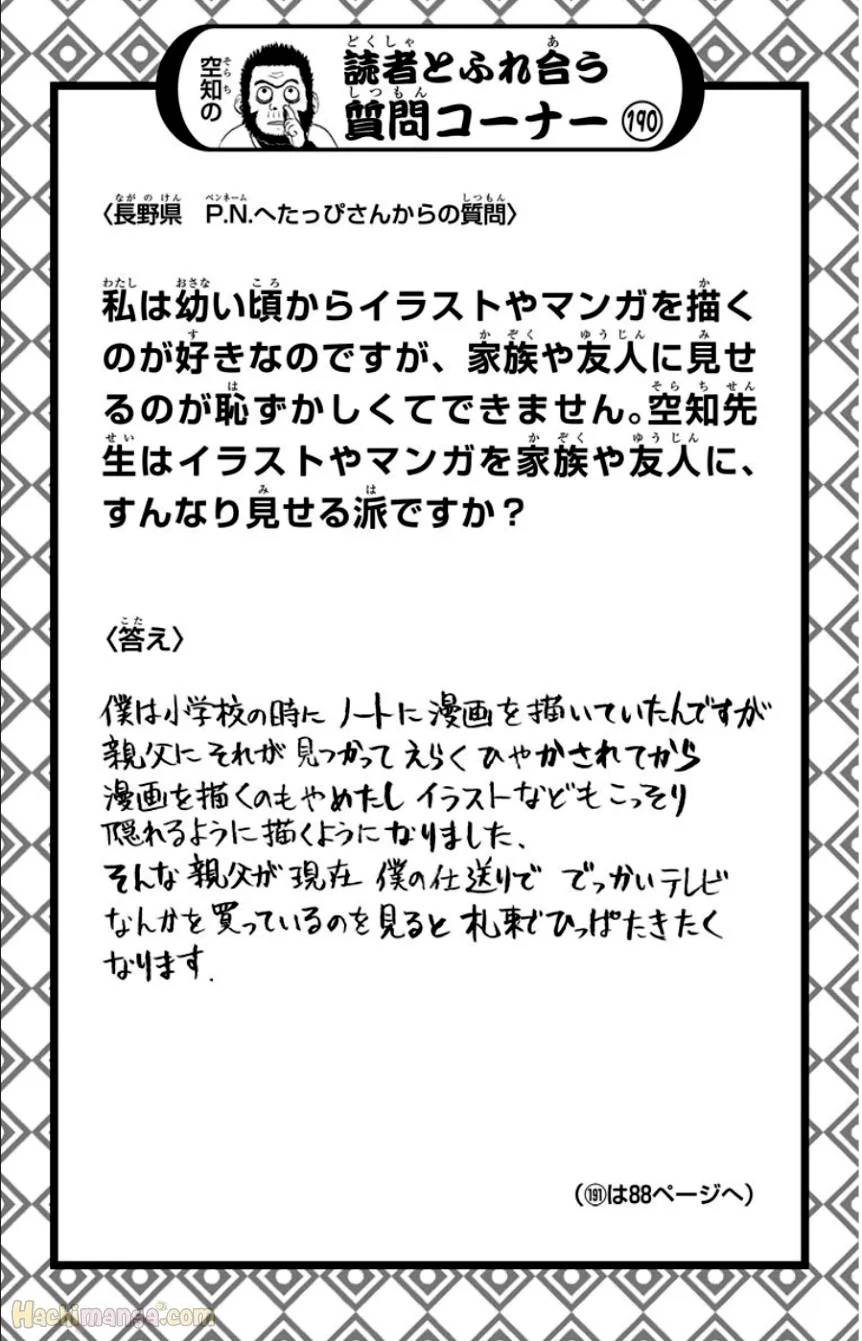 空知の
読者とふれ合う
質問コーナー 190
〈長野県 P.N.へたっぴさんからの質問〉
私は幼い頃からイラストやマンガを描く
のが好きなのですが、家族や友人に見せ
るのが恥ずかしくてできません。空知先
生はイラストやマンガを家族や友人に、
すんなり見せる派ですか？
〈答え〉
僕は小学校の時に ノートに漫画を描いていたんですが
親父にそれが見つかってえらくひやかされてから
漫画を描くのもやめたし イラストなどもこっそり
隠れるように描くようになりました、
そんな親父が現在 僕の仕送りで でっかいテレビ
なんかを買っているのを見ると 札束でひっぱたきたく
なります.
(191は88ページへ)
Hachimanga.com